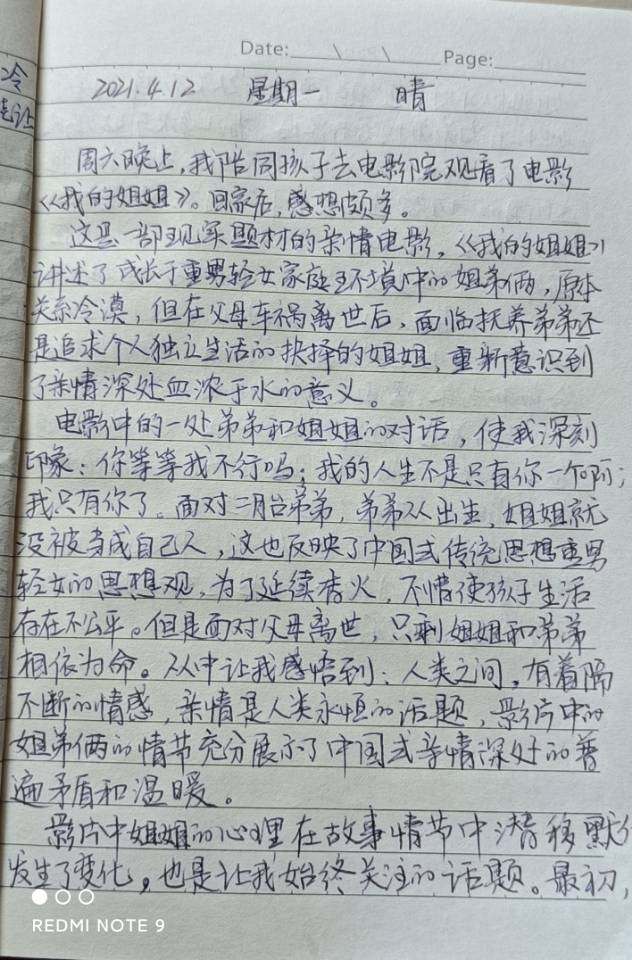 冷
Date: \ \ Page:
2021.4.12 星期一 晴
周六晚上,我陪同孩子去电影院观看了电影
《我的姐姐》。回家后,感想颇多。
这是一部现实题材的亲情电影,《我的姐姐》
讲述了成长于重男轻女家庭环境中的姐弟俩,原本
关系冷漠,但在父母车祸离世后,面临抚养弟弟还
是追求个人独立生活的抉择的姐姐,重新意识到
了亲情深处血浓于水的意义。
电影中的一处弟弟和姐姐的对话,使我深刻
印象:你等等我不行吗;我的人生不是只有你一个啊;
我只有你了。面对二胎弟弟,弟弟从出生,姐姐就
没被当成自己人,这也反映了中国式传统思想重男
轻女的思想观,为了延续香火,不惜使孩子生活
存在不公平。但是面对父母离世,只剩姐姐和弟弟
相依为命。从中让我感悟到:人类之间,有着隔
不断的情感,亲情是人类永恒的话题,影片中的
姐弟俩的情节充分展示了中国式亲情深处的普
遍矛盾和温暖。
影片中姐姐的心理在故事情节中潜移默
发生了变化,也是让我始终关注的话题。最初,
REDMI NOTE 9